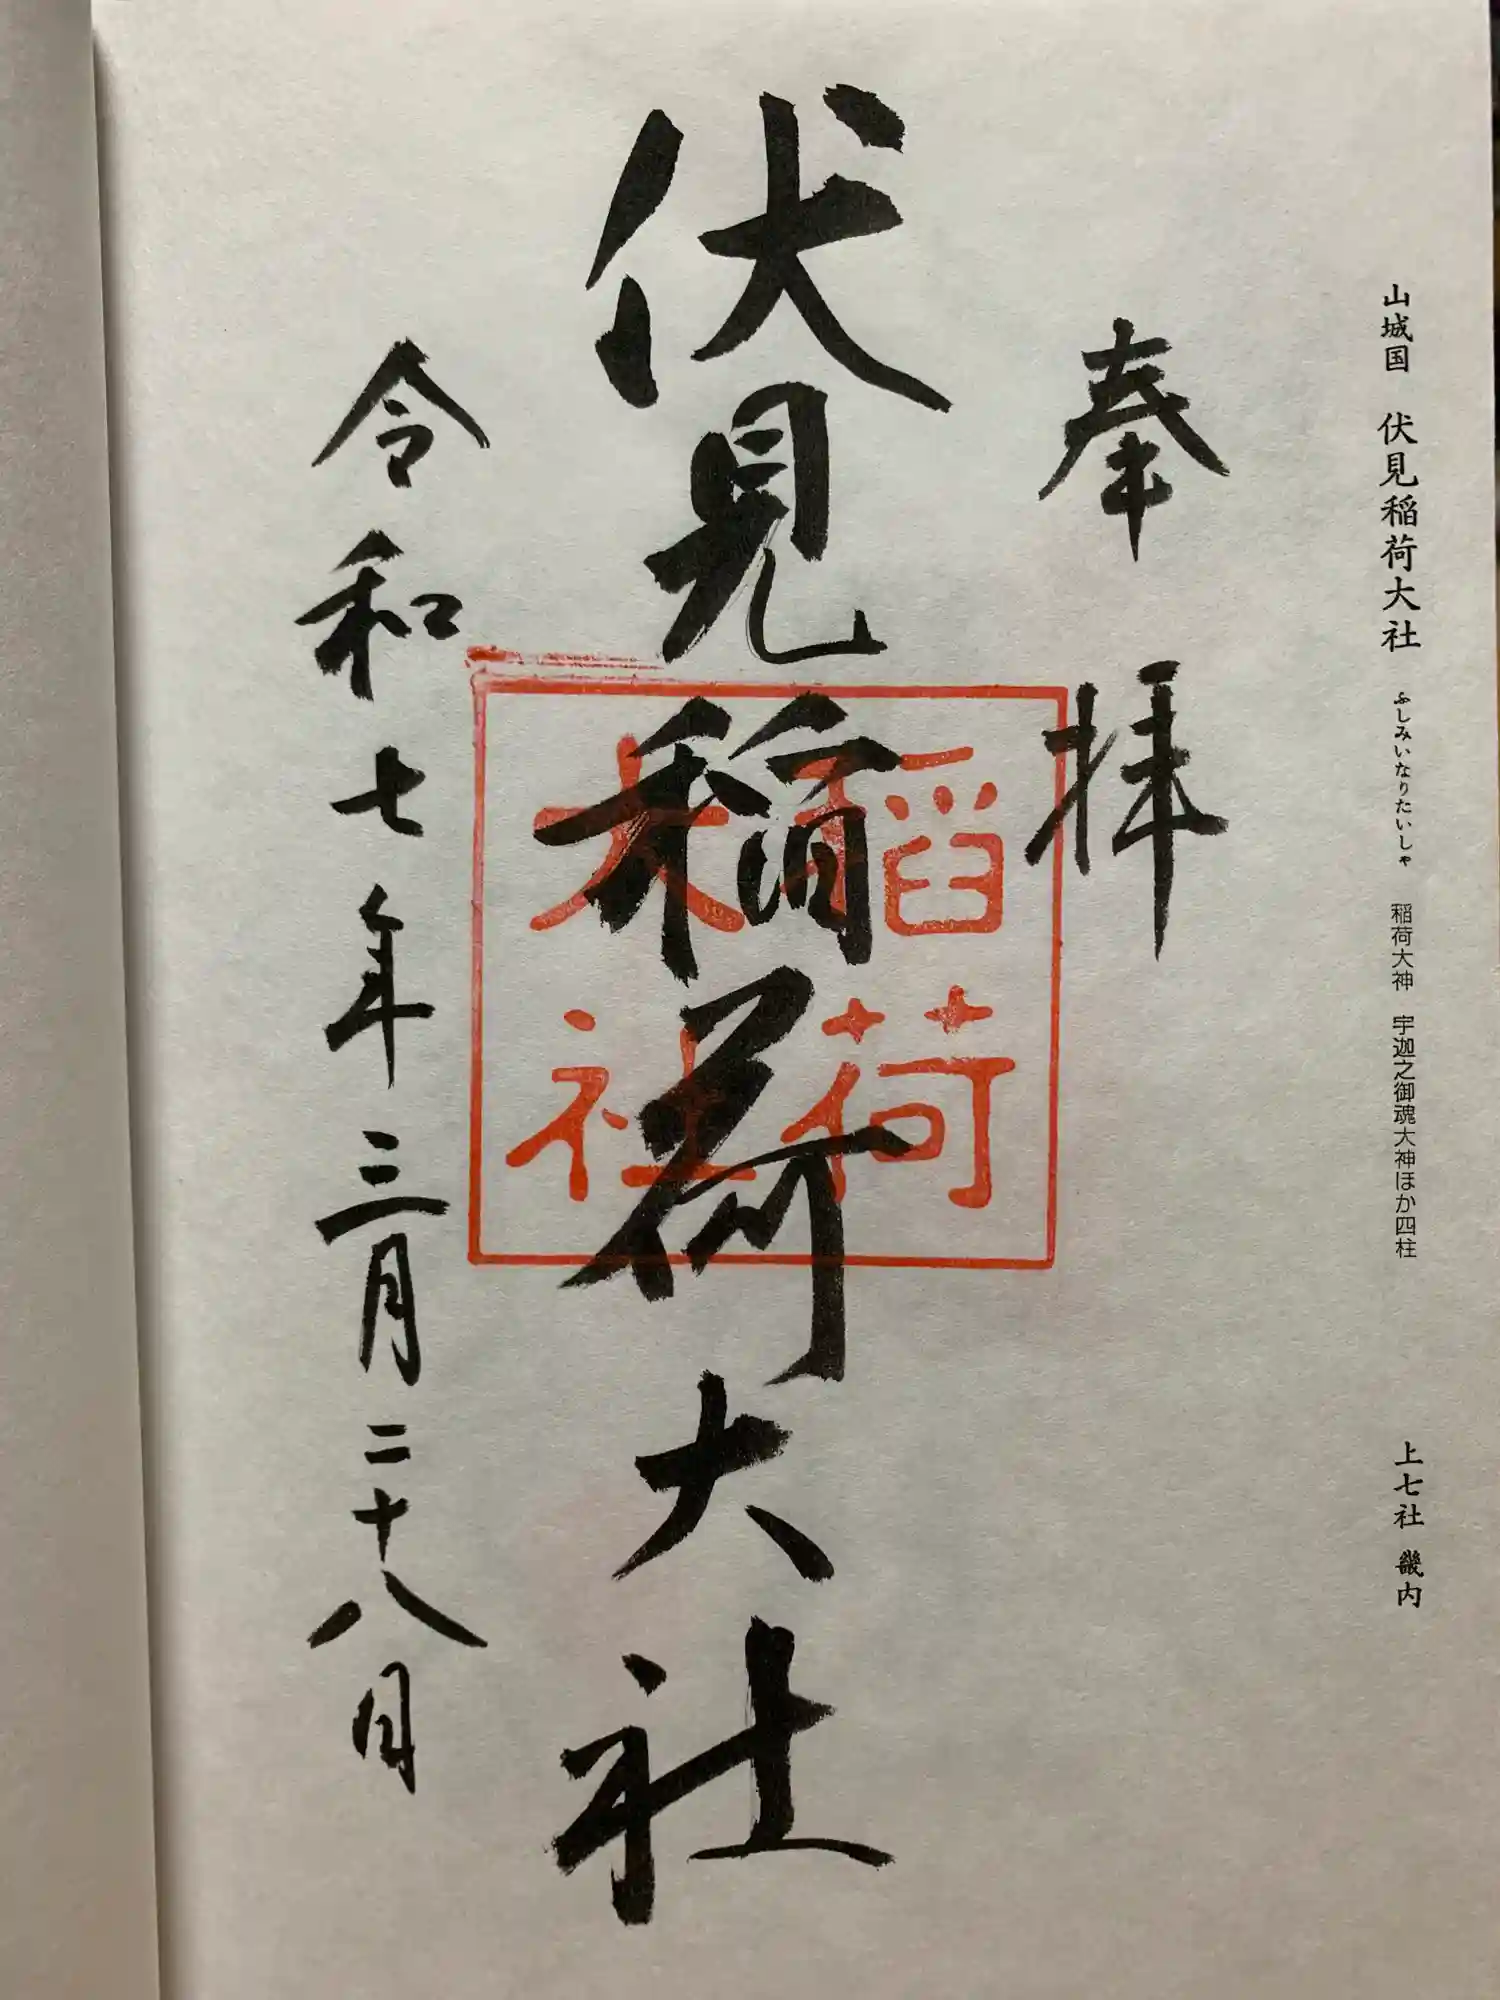 山城国 伏見稲荷大社 ふしみいなりたいしゃ 稲荷大神 宇迦之御魂大神ほか四柱 上七社 畿内
奉拝
伏見稲荷大社
稲荷
大社
令和七年三月二十八日